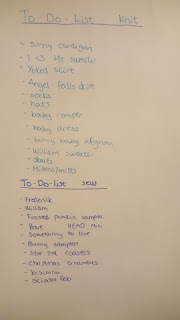 To-Do-List Knit
- Sunny cardigan
- I <3 sweater
- Yoked skirt
- Angel Falls skirt
- socks
- hats
- baby romper
- baby dress
- bunny baby afghan
- William sweater
- skirts
- Mittens/mitts
To-Do-list sew
- Frederick
- William
- Frosted pumpkin sampler
- Have
- Something to love
- Bunny sampler
- Star Trek coasters
- Christmas ornaments
- biscornu
- Scissor fob